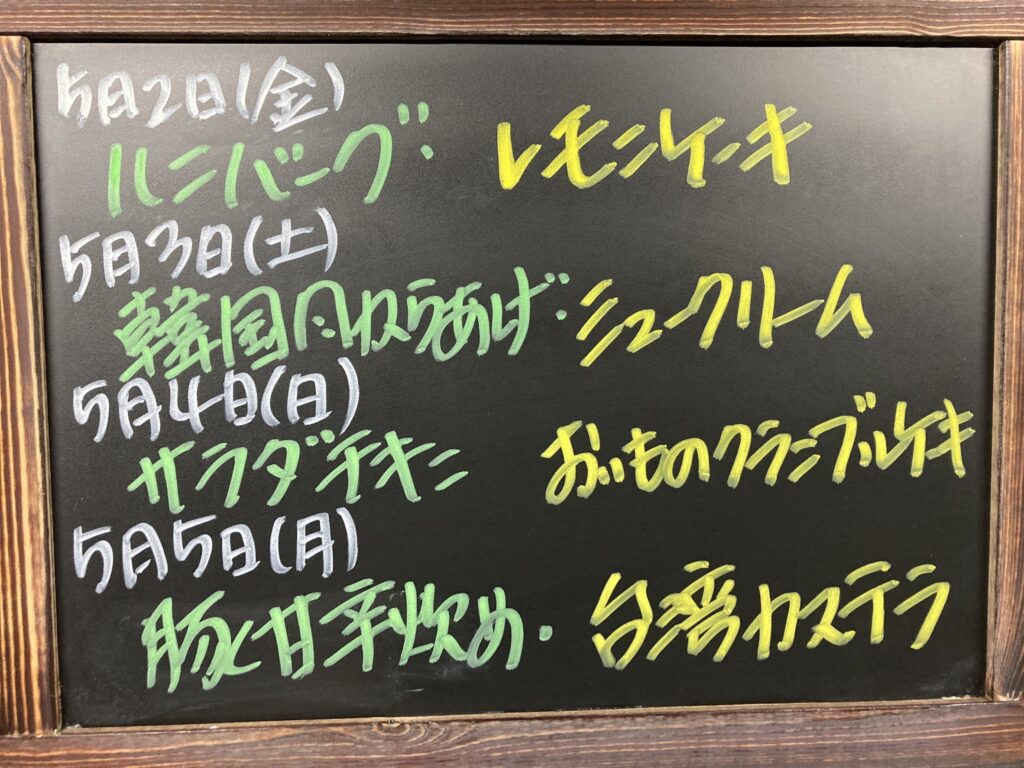 5月2日(金)
ハンバーグ: レモンケーキ
5月3日(土)
韓国风からあげ: シュークリーム
5月4日(日)
サラダチキン おいものクランブルケーキ
5月5日(月)
豚甘辛炊め・ 台湾カステラ